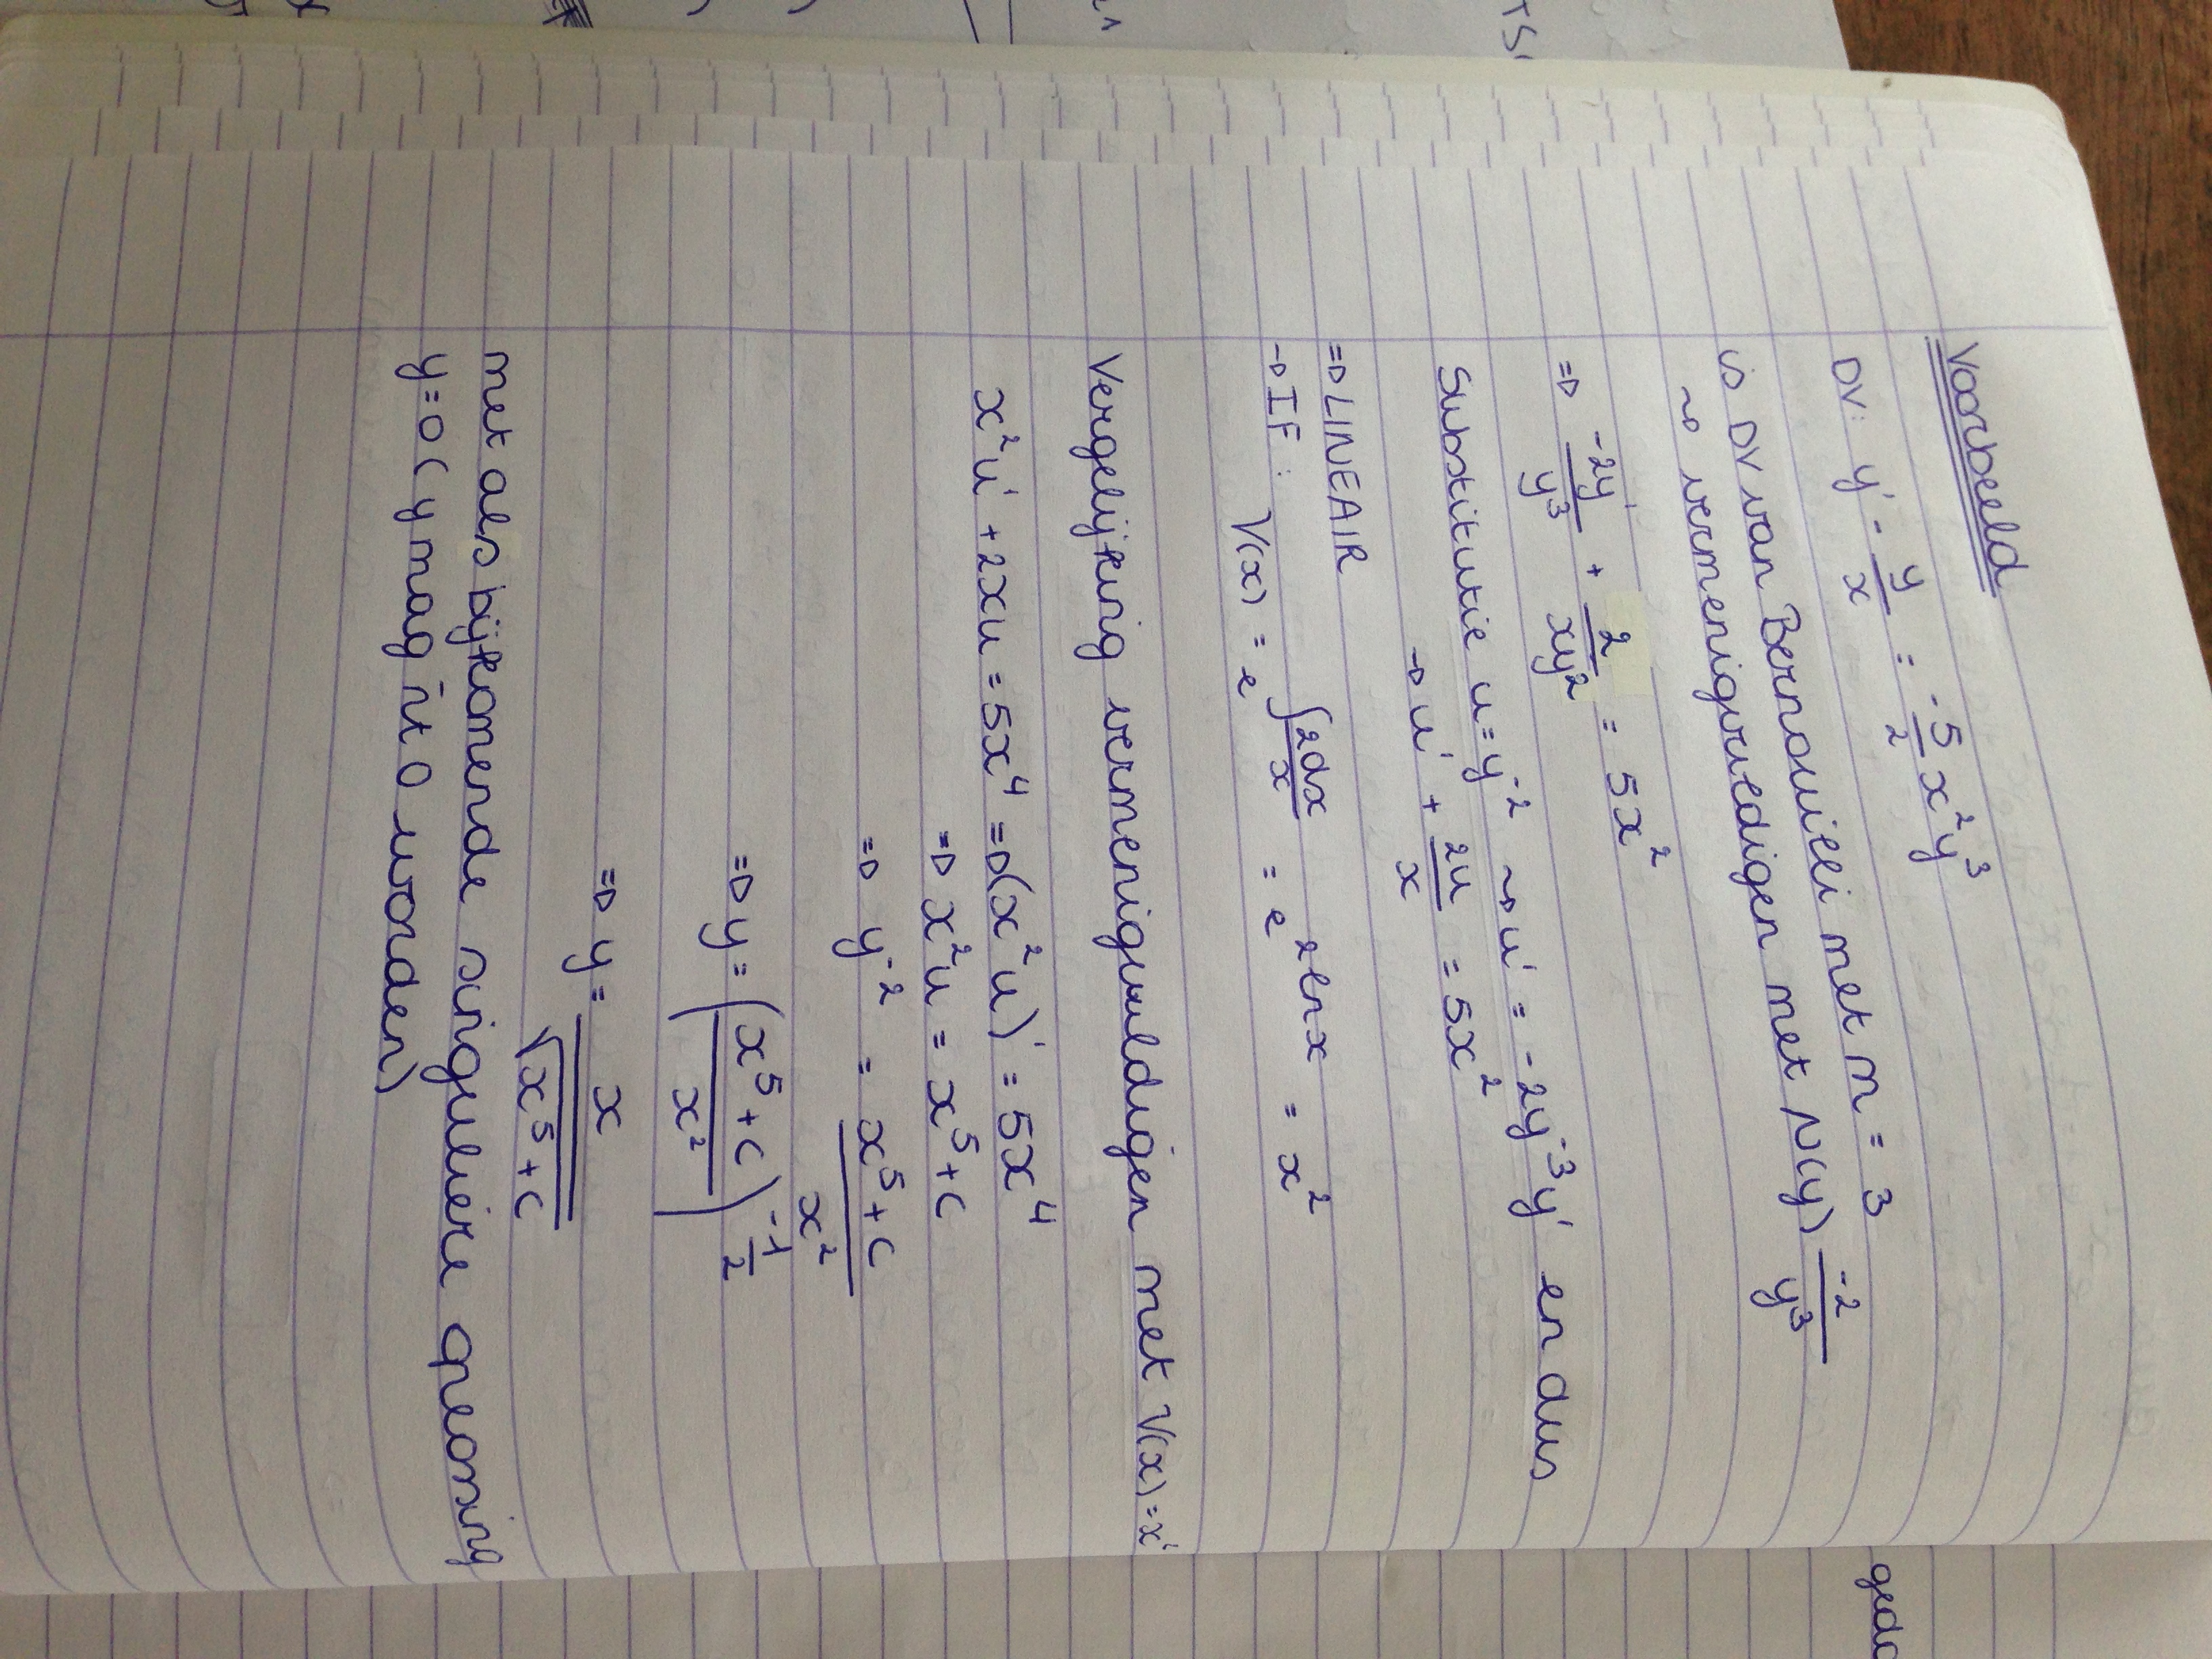 Voorbeeld
DV: y' - y/x = -5/2 x²y³
is DV van Bernouilli met n = 3
⇝ vermenigvuldigen met N(y) -2/y³
⇒ -2y'/y³ + 2/xy² = 5x²
Substitutie u = y⁻² ⇝ u' = -2y⁻³y' en dus
→ u' + 2u/x = 5x²
⇒ LINEAIR
→ IF : V(x) = e^∫2dx/x = e^2lnx = x²
Vergelijking vermenigvuldigen met V(x) = x²
x²u' + 2xu = 5x⁴ ⇒ (x²u)' = 5x⁴
⇒ x²u = x⁵ + c
⇒ y⁻² = x⁵ + c / x²
⇒ y = (x⁵ + c / x²)^-1/2
⇒ y = x / √x⁵ + c
met als bijkomende singuliere oplossing
y = 0 (y mag nt 0 worden)